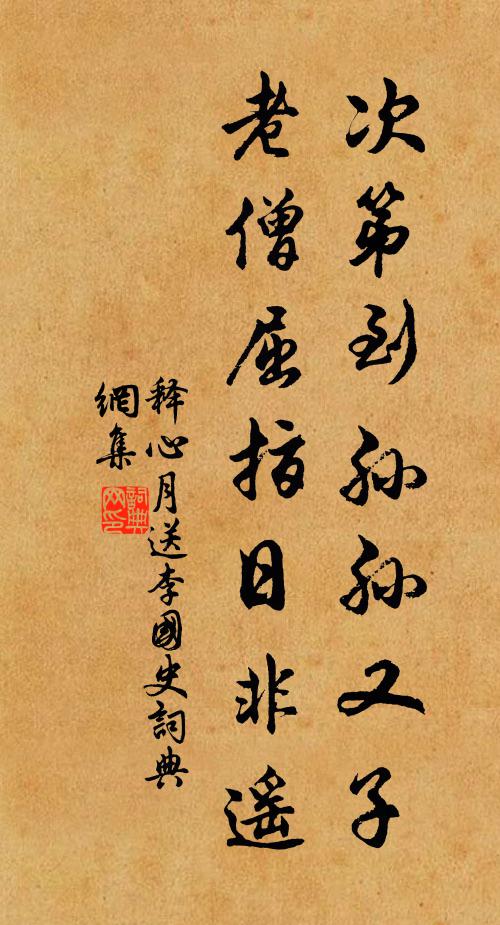 次第到孙孙又子
老僧屈指日非遥
释心月送李國史詞典
網集
詞典网印